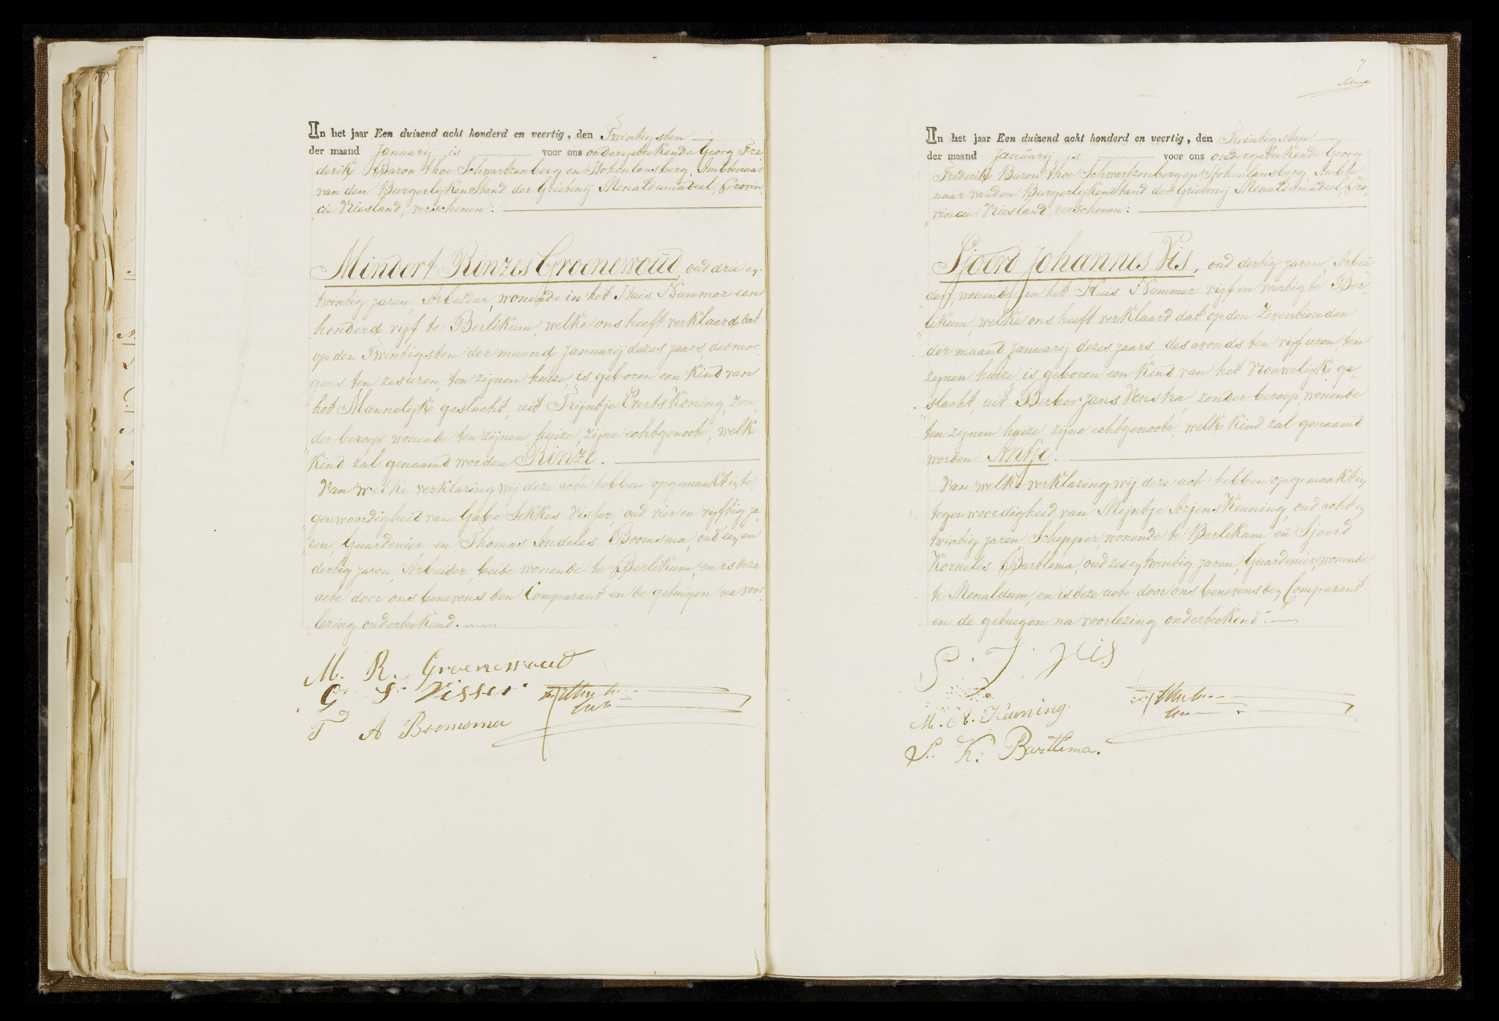 In het jaar Een duizend acht honderd en veertig, den Twintigsten
der maand Januarij is voor ons ondergeteekende Georg Fre
derik Baron thoe Schwartzenberg en Hohenlansberg, Ambtenaar
van den Burgerlijken Stand der Grietenij Menaldumadeel, Provin
cie Vriesland, verschenen:
Mindert Rinzes Groenewoud, oud drie en
twintig jaren, Arbeider, wonende in het Huis Nummer een
honderd vijf te Berlikum, welke ons heeft verklaard dat
op den Twintigsten der maand Januarij dezes jaars des mor
gens ten zes uren, ten zijnen huize, is geboren een kind van
het Mannelijk geslacht, uit Trijntje Everts Koning, zon
der beroep wonende ten zijnen huize, zijne echtgenoote, welk
kind zal genaamd worden Rinze.
Van welke verklaring wij deze acte hebben opgemaakt in te
genwoordigheid van Gabe Sekkes Visser, oud vier en vijftig ja
ren, Guardenier, en Thomas Boomsma, oud en
dertig jaren, Arbeider, beide wonende te Berlikum, en is deze
acte door ons benevens den Comparant en de getuigen na voor
lezing onderteekend.
M. R. Groenewoud
G. S. Visser
T A Boomsma
7
In het jaar Een duizend acht honderd en veertig, den Twintigsten
der maand Januarij is voor ons ondergeteekende Georg
Frederik Baron thoe Schwartzenberg en Hohenlansberg, Ambte
naar van den Burgerlijken Stand der Grietenij Menaldumadeel, Pro
vincie Vriesland, verschenen:
Sjoerd Johannes Vis, oud dertig jaren, Arbei
der, wonende in het Huis Nummer vijf en veertig te Ber
likum, welke ons heeft verklaard dat op den Zeventienden
der maand Januarij dezes jaars, des avonds ten vijf uren ten
zijnen huize is geboren een kind van het Vrouwelijk ge
slacht, uit Berber Jans Venstra, zonder beroep, wonende
ten zijnen huize zijne echtgenoote, welk kind zal genaamd
worden Antje.
Van welke verklaring wij deze acte hebben opgemaakt in
tegenwoordigheid van Mijntje Kenning, oud acht en
twintig jaren Schipper wonende te Berlikum en Sjoerd
Kornelis Barthema, oud zes en twintig jaren, Guardenier wonende
te Menaldum, en is deze acte door ons benevens den Comparant
en de getuigen na voorlezing onderteekend.
S. J. Vis
M. A. Kenning.
S. K. Barthema.